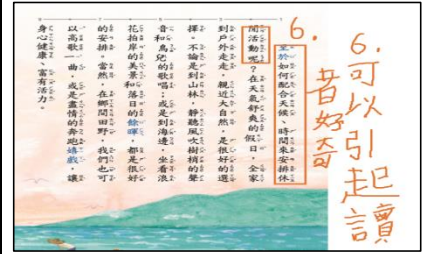 6.可以引起讀
者好奇
6.
至於如何配合天候、時間來安排休
閒活動呢？在天氣舒爽的假日，全家
到戶外走走，親近大自然，是很好的選
擇。不論是到山林，靜聽風吹樹梢的聲
音和鳥兒的歌唱；或是到海邊，坐看浪
花拍岸的美景和落日的餘暉，都是很好
的安排。當然，在鄉間田野，我們也可
以高歌一曲，或是盡情的奔跑嬉戲，讓
身心健康、富有活力。